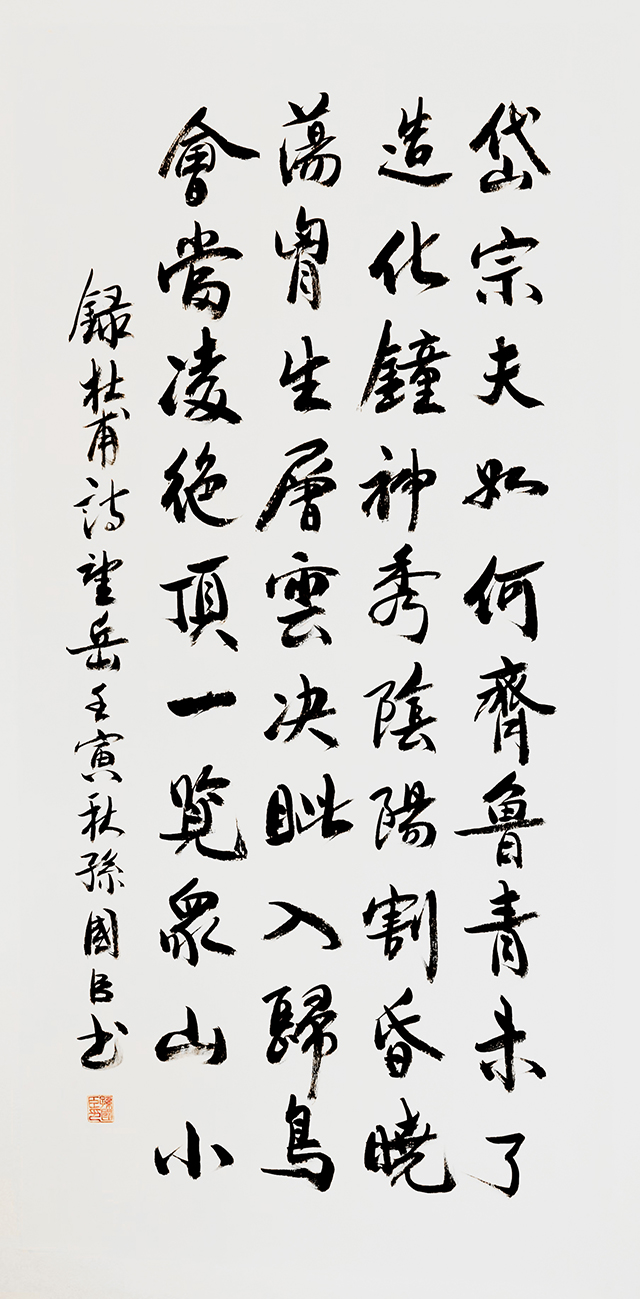 岱宗夫如何齊魯青未了
造化鐘神秀陰陽割昏曉
蕩胷生層雲决眦入歸鳥
會當凌絶頂一覽衆山小
録杜甫詩望岳壬寅秋孫國臣书